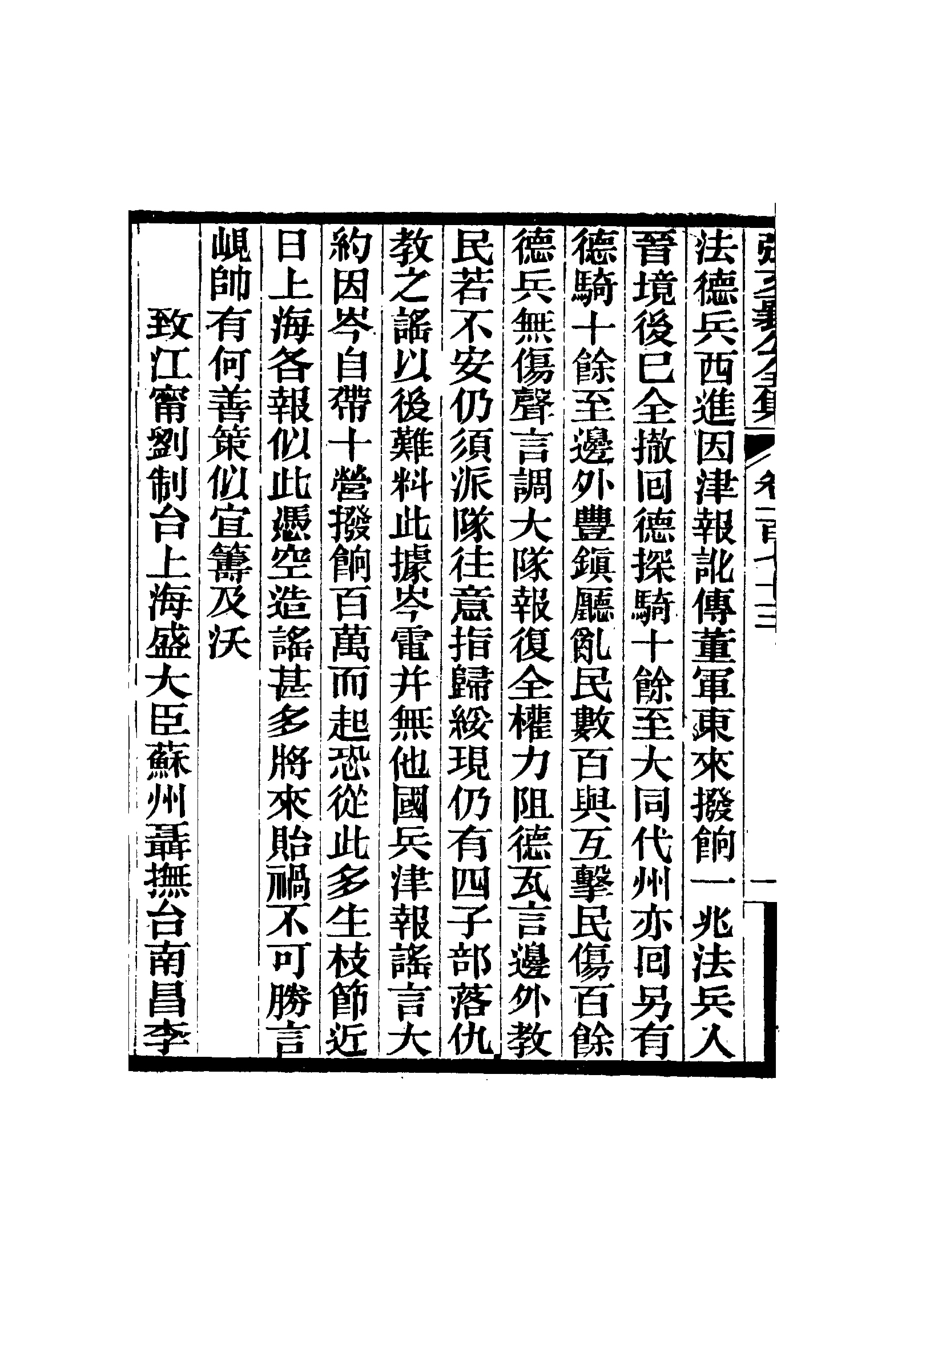 張文襄公全集 卷一百七十三 一
法德兵西進因津報訛傳董軍東來撥餉一兆法兵入
晉境後已全撤回德探騎十餘至大同代州亦回另有
德騎十餘至邊外豐鎮廳亂民數百與互擊民傷百餘
德兵無傷聲言調大隊報復全權力阻德瓦言邊外教
民若不安仍須派隊往意指歸綏現仍有四子部落仇
教之謠以後難料此據岑電并無他國兵津報謠言大
約因岑自帶十營撥餉百萬而起恐從此多生枝節近
日上海各報似此憑空造謠甚多將來貽禍不可勝言
峴帥有何善策似宜籌及沃
致江甯劉制台上海盛大臣蘇州聶撫台南昌李